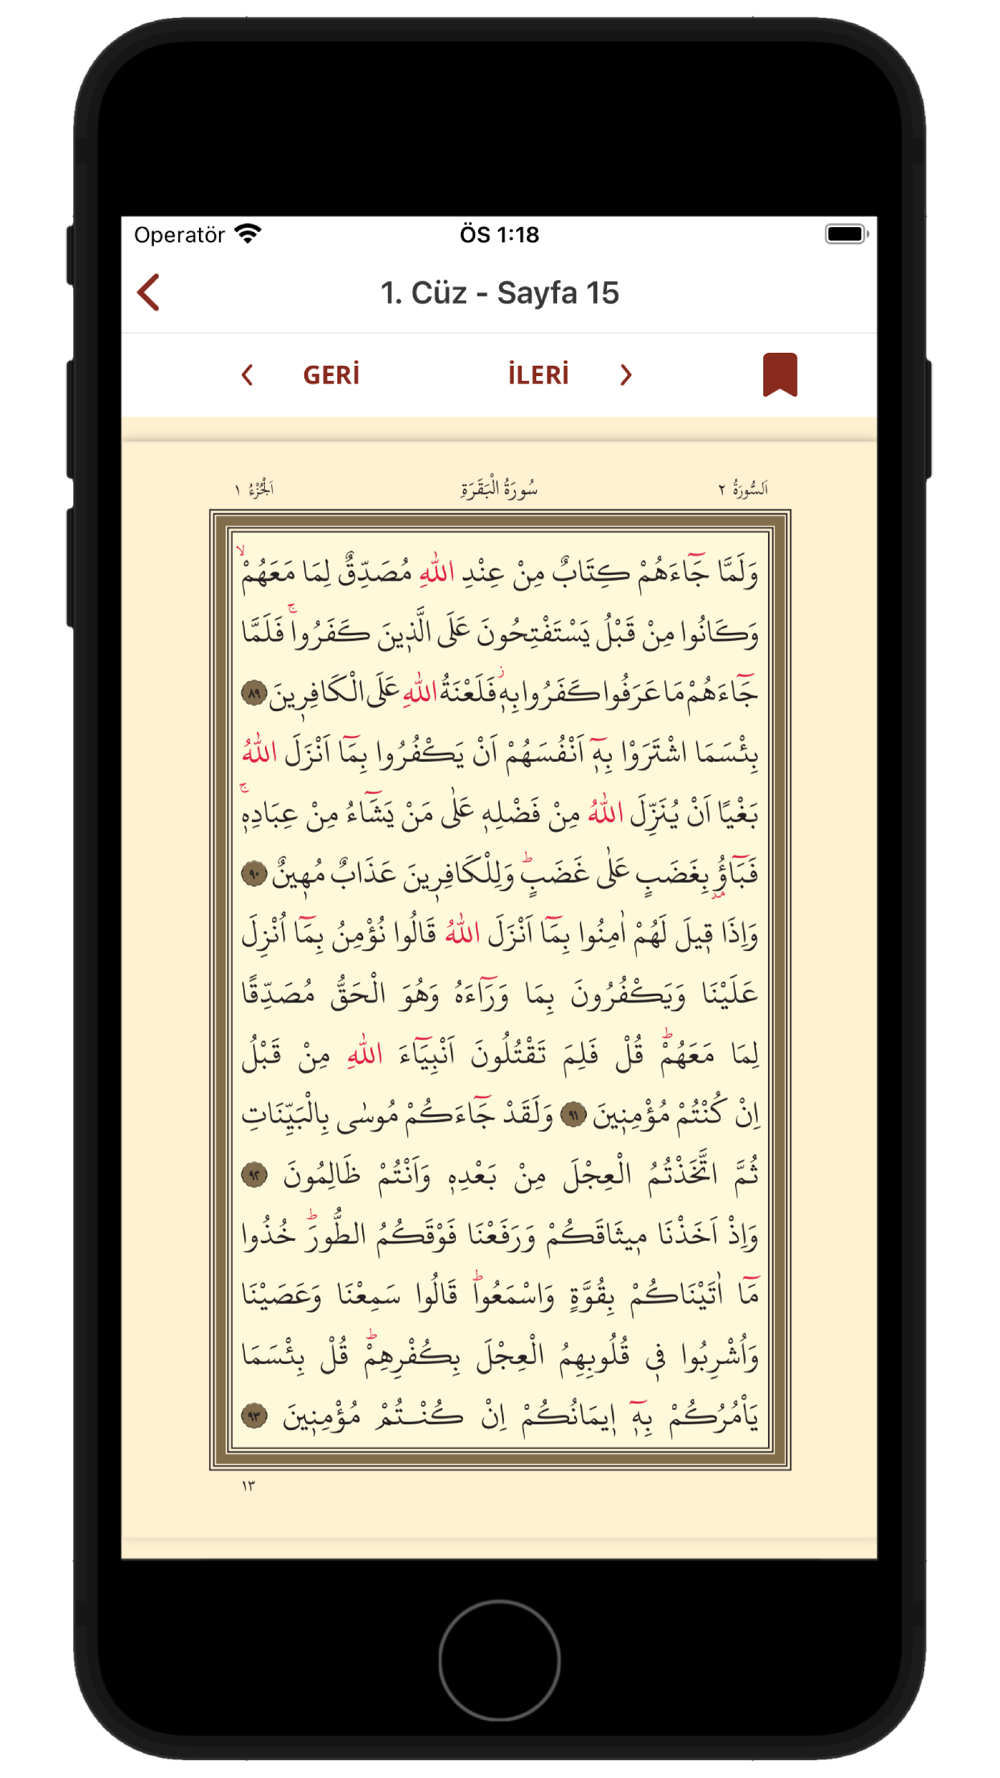 Operatör ÖS 1:18
1. Cüz - Sayfa 15
GERİ İLERİ
اَلسُّورَةُ ٢ سُورَةُ الْبَقَرَةِ اَلْجُزْءُ ١
وَلَمَّا جَٓاءَهُمْ كِتَابٌ مِنْ عِنْدِ اللّٰهِ مُصَدِّقٌ لِمَا مَعَهُمْۙ
وَكَانُوا مِنْ قَبْلُ يَسْتَفْتِحُونَ عَلَى الَّذ۪ينَ كَفَرُواۚ فَلَمَّا
جَٓاءَهُمْ مَا عَرَفُوا كَفَرُوا بِه۪ۘ فَلَعْنَةُ اللّٰهِ عَلَى الْكَافِر۪ينَ ٨٩
بِئْسَمَا اشْتَرَوْا بِه۪ٓ اَنْفُسَهُمْ اَنْ يَكْفُرُوا بِمَٓا اَنْزَلَ اللّٰهُ
بَغْيًا اَنْ يُنَزِّلَ اللّٰهُ مِنْ فَضْلِه۪ عَلٰى مَنْ يَشَٓاءُ مِنْ عِبَادِه۪ۚ
فَبَٓاؤُ۫ بِغَضَبٍ عَلٰى غَضَبٍۜ وَلِلْكَافِر۪ينَ عَذَابٌ مُه۪ينٌ ٩٠
وَاِذَا ق۪يلَ لَهُمْ اٰمِنُوا بِمَٓا اَنْزَلَ اللّٰهُ قَالُوا نُؤْمِنُ بِمَٓا اُنْزِلَ
عَلَيْنَا وَيَكْفُرُونَ بِمَا وَرَٓاءَهُ وَهُوَ الْحَقُّ مُصَدِّقًا
لِمَا مَعَهُمْۜ قُلْ فَلِمَ تَقْتُلُونَ اَنْبِيَٓاءَ اللّٰهِ مِنْ قَبْلُ
اِنْ كُنْتُمْ مُؤْمِن۪ينَ ٩١ وَلَقَدْ جَٓاءَكُمْ مُوسٰى بِالْبَيِّنَاتِ
ثُمَّ اتَّخَذْتُمُ الْعِجْلَ مِنْ بَعْدِه۪ وَاَنْتُمْ ظَالِمُونَ ٩٢
وَاِذْ اَخَذْنَا م۪يثَاقَكُمْ وَرَفَعْنَا فَوْقَكُمُ الطُّورَۜ خُذُوا
مَٓا اٰتَيْنَاكُمْ بِقُوَّةٍ وَاسْمَعُواۜ قَالُوا سَمِعْنَا وَعَصَيْنَا
وَاُشْرِبُوا ف۪ي قُلُوبِهِمُ الْعِجْلَ بِكُفْرِهِمْۜ قُلْ بِئْسَمَا
يَأْمُرُكُمْ بِه۪ٓ ا۪يمَانُكُمْ اِنْ كُنْتُمْ مُؤْمِن۪ينَ ٩٣
١٣